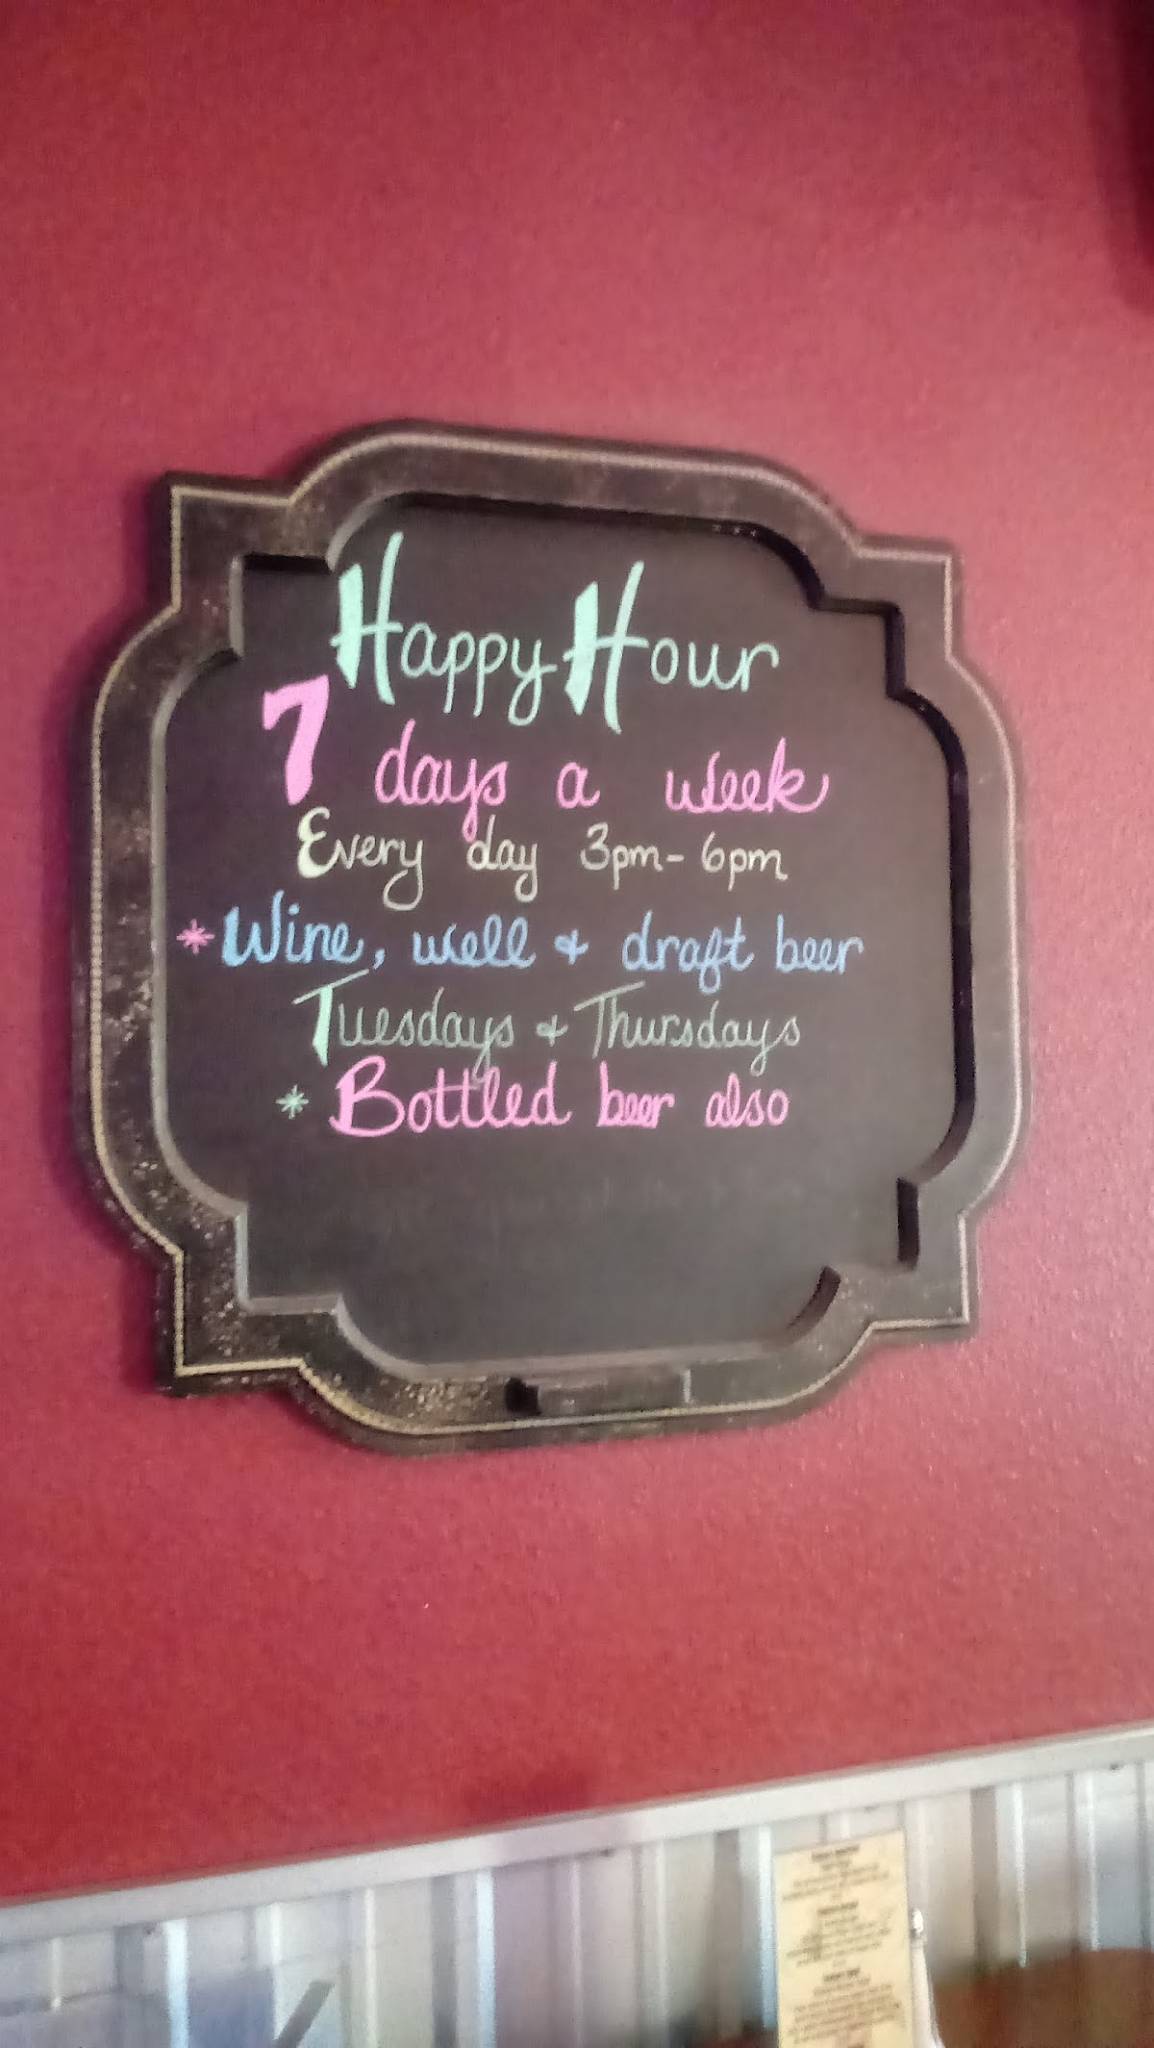 Happy Hour
7 days a week
Every day 3pm-6pm
*Wine, well & draft beer
Tuesdays & Thursdays
* Bottled beer also